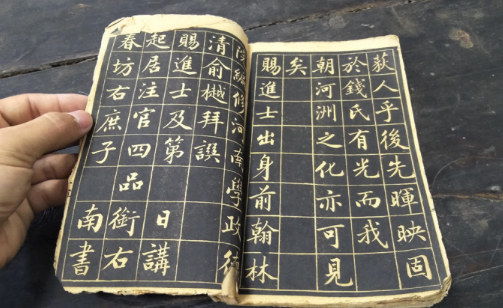 荻人乎後先暉映固
於錢氏有光而我
朝河洲之化亦可見
矣
賜進士出身前翰林
編修河南學政
清俞樾拜譔
賜進士及第日講
起居注官四品銜右
春坊右庶子南書